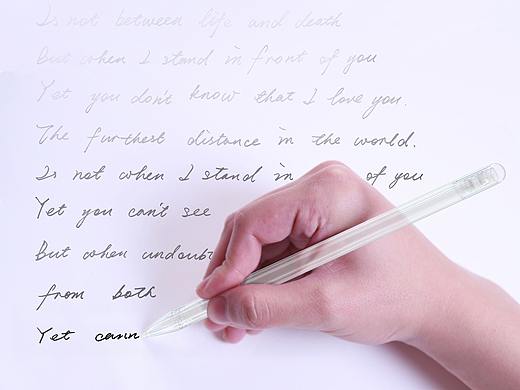 Is not between life and death
But when I stand in front of you
Yet you don't know that I love you.
The furthest distance in the world.
Is not when I stand in of you
Yet you can't see
But when undoubt
from both
Yet cann